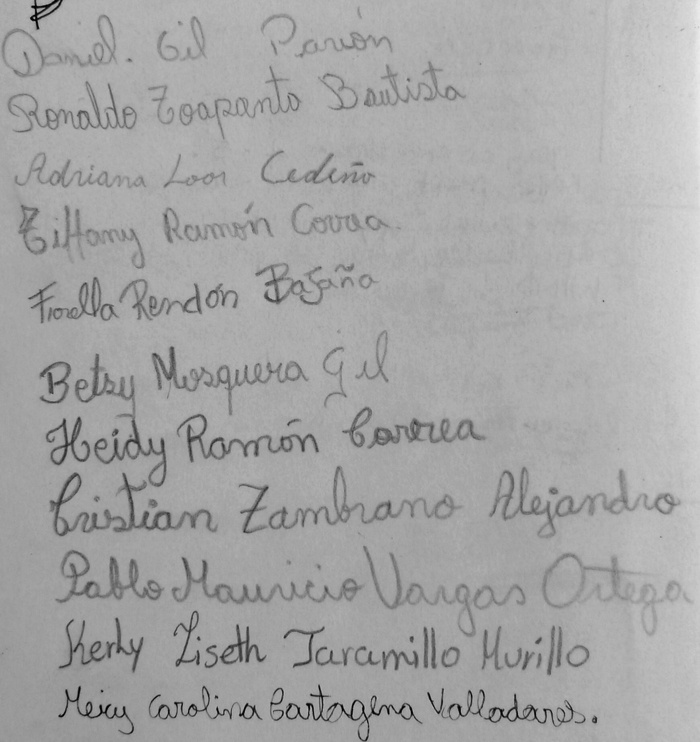 Daniel. Gil Pavón
Ronaldo Toapanta Bautista
Adriana Loor Cedeño
Tiffany Ramón Correa.
Fiorella Rendón Bajaña
Betsy Mosquera Gil
Heidy Ramón Correa
Cristian Zambrano Alejandro
Pablo Mauricio Vargas Ortega
Kerly Liseth Jaramillo Murillo
Carolina Cartagena Valladares.